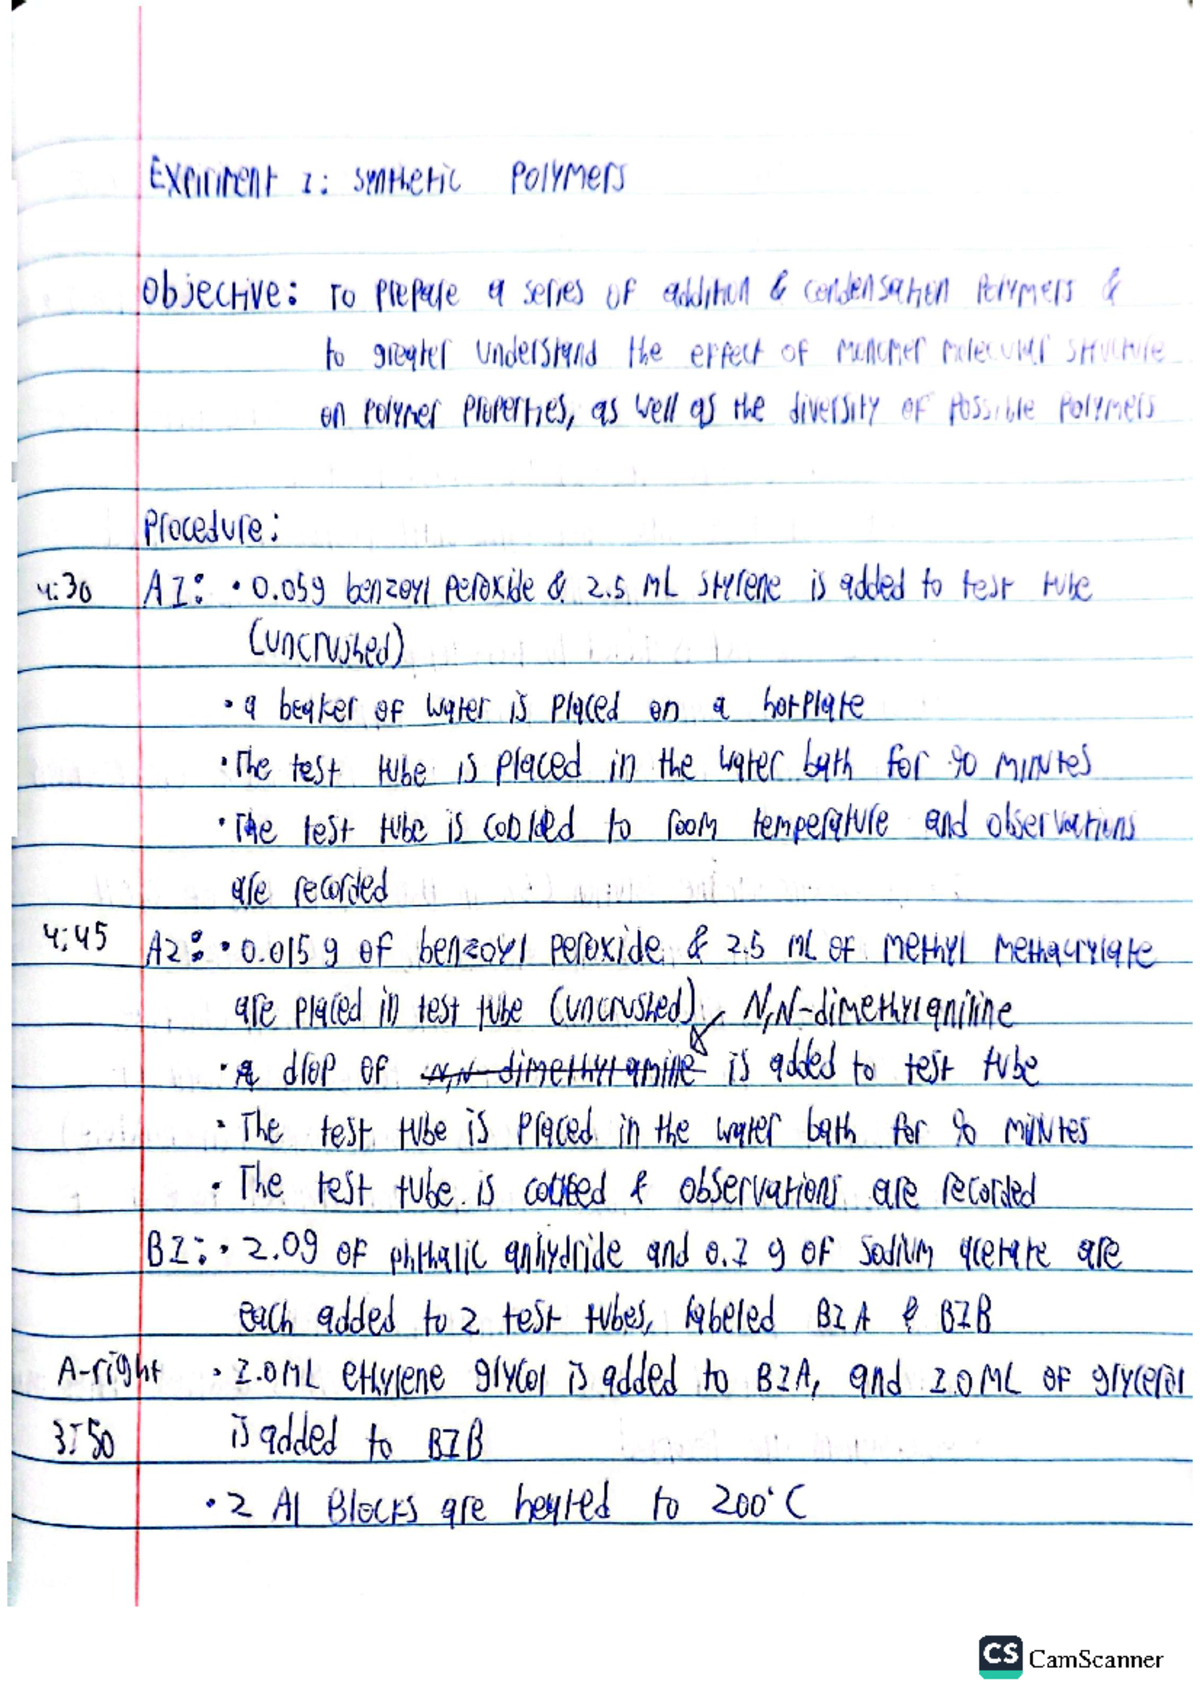 Expiriment 1: Synthetic Polymers
Objective: To prepare a series of addition & condensation polymers &
to greater understand the effect of monomer molecular structure
on polymer properties, as well as the diversity of possible polymers
Procedure:
4:30 A1: • 0.05g benzoyl peroxide & 2.5 mL styrene is added to test tube
(uncrushed)
• a beaker of water is placed on a hotplate
• The test tube is placed in the water bath for 90 minutes
• The test tube is cooled to room temperature and observations
are recorded
4:45 A2: • 0.015 g of benzoyl peroxide & 2.5 mL of methyl methacrylate
are placed in test tube (uncrushed) N,N-dimethylaniline
• A drop of N,N-dimethylamine is added to test tube
• The test tube is placed in the water bath for 90 minutes
• The test tube is cooled & observations are recorded
B1: • 2.0g of phthalic anhydride and 0.1 g of sodium acetate are
each added to 2 test tubes, labeled B1A & B1B
A-right • 1.0mL ethylene glycol is added to B1A, and 1.0mL of glycerol
3:50 is added to B1B
• 2 Al Blocks are heated to 200°C
CS CamScanner